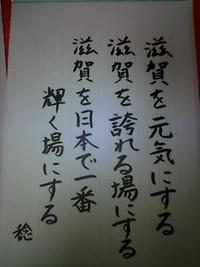 滋賀を元気にする
滋賀を誇れる場にする
滋賀を日本で一番
輝く場にする
稔